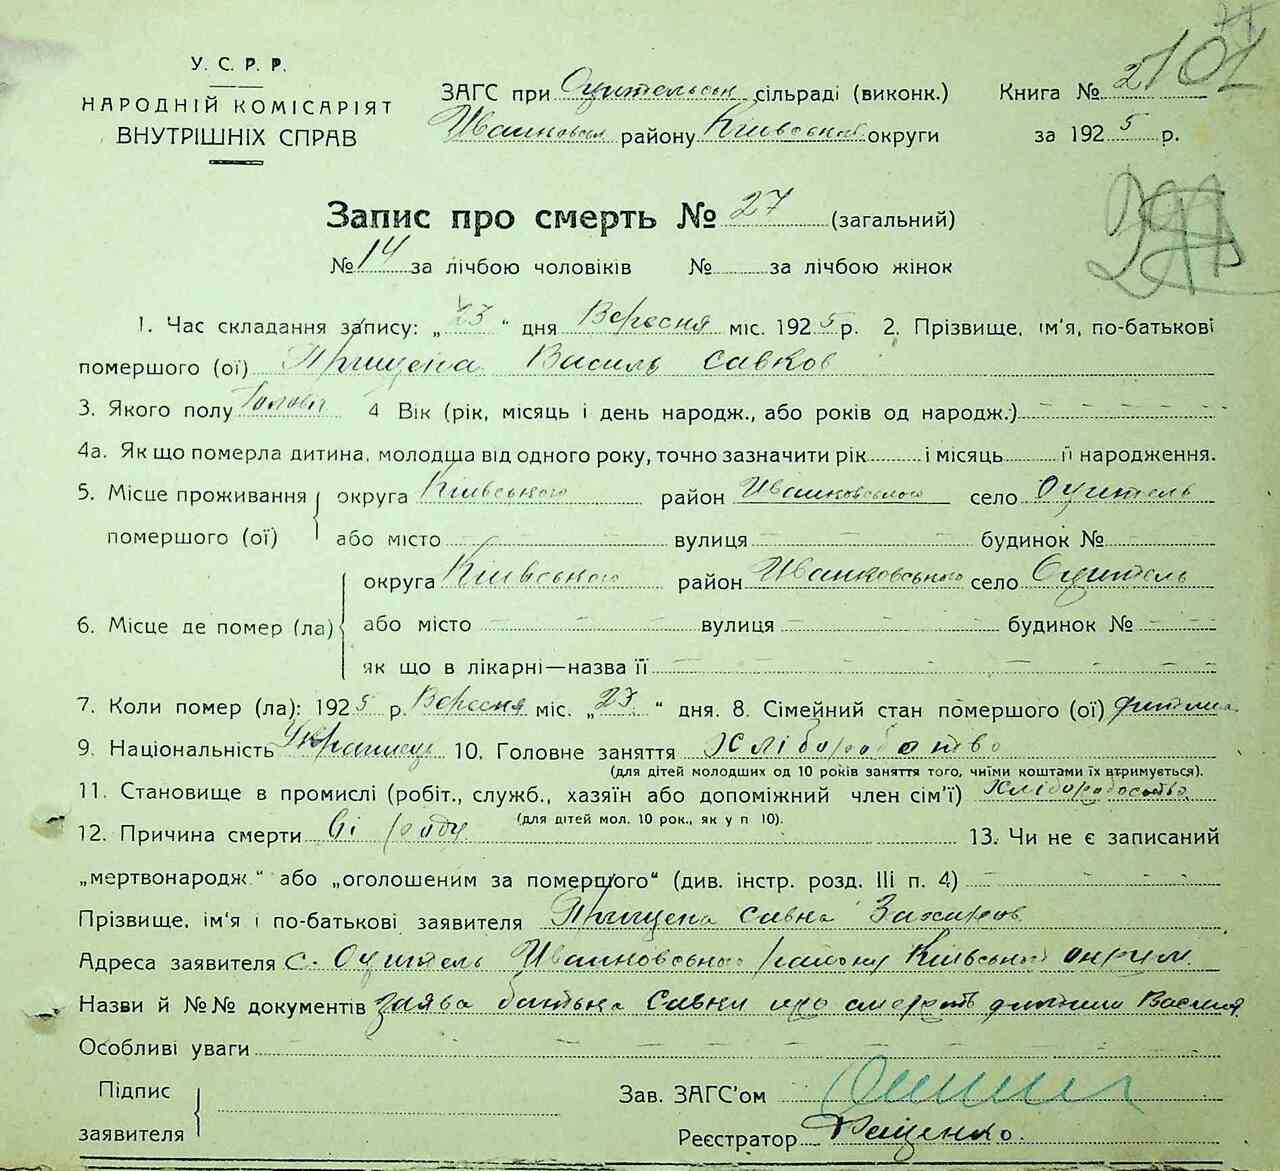 У. С. Р. Р.
НАРОДНІЙ КОМІСАРІЯТ
ВНУТРІШНІХ СПРАВ
ЗАГС при сільраді (виконк.)
району Київської округи
Книга №
за 1925 р.
Запис про смерть № 27 (загальний)
№ 14 за лічбою чоловіків № за лічбою жінок
1. Час складання запису: „23" дня Вересня міс. 1925 р. 2. Прізвище, ім'я, по-батькові
помершого (ої) Прищепа Василь Савков
3. Якого полу 4 Вік (рік, місяць і день народж., або років од народж.)
4а. Як що померла дитина, молодща від одного року, точно зазначити рік і місяць її народження.
5. Місце проживання помершого (ої) округа Київського район Иванковського село Оцитель
або місто вулиця будинок №
6. Місце де помер (ла) округа Київського район Иванковського село Оцитель
або місто вулиця будинок №
як що в лікарні—назва її
7. Коли помер (ла): 1925 р. Вересня міс. „23" дня. 8. Сімейний стан помершого (ої) дитина
9. Національність Українец 10. Головне заняття Хліборобство
(для дітей молодших од 10 років заняття того, чиїми коштами їх втримується).
11. Становище в промислі (робіт., служб., хазяїн або допоміжний член сім'ї)
(для дітей мол. 10 рок., як у п 10).
12. Причина смерти 13. Чи не є записаний
„мертвонародж." або „оголошеним за помершого" (див. інстр. розд. III п. 4)
Прізвище, ім'я і по-батькові заявителя Прищепа Савка Захаров
Адреса заявителя с. Оцитель Иванковського району Київської
Назви й №№ документів заява батька Савки про смерть дитини Василя
Особливі уваги
Підпис заявителя
Зав. ЗАГС'ом
Реєстратор